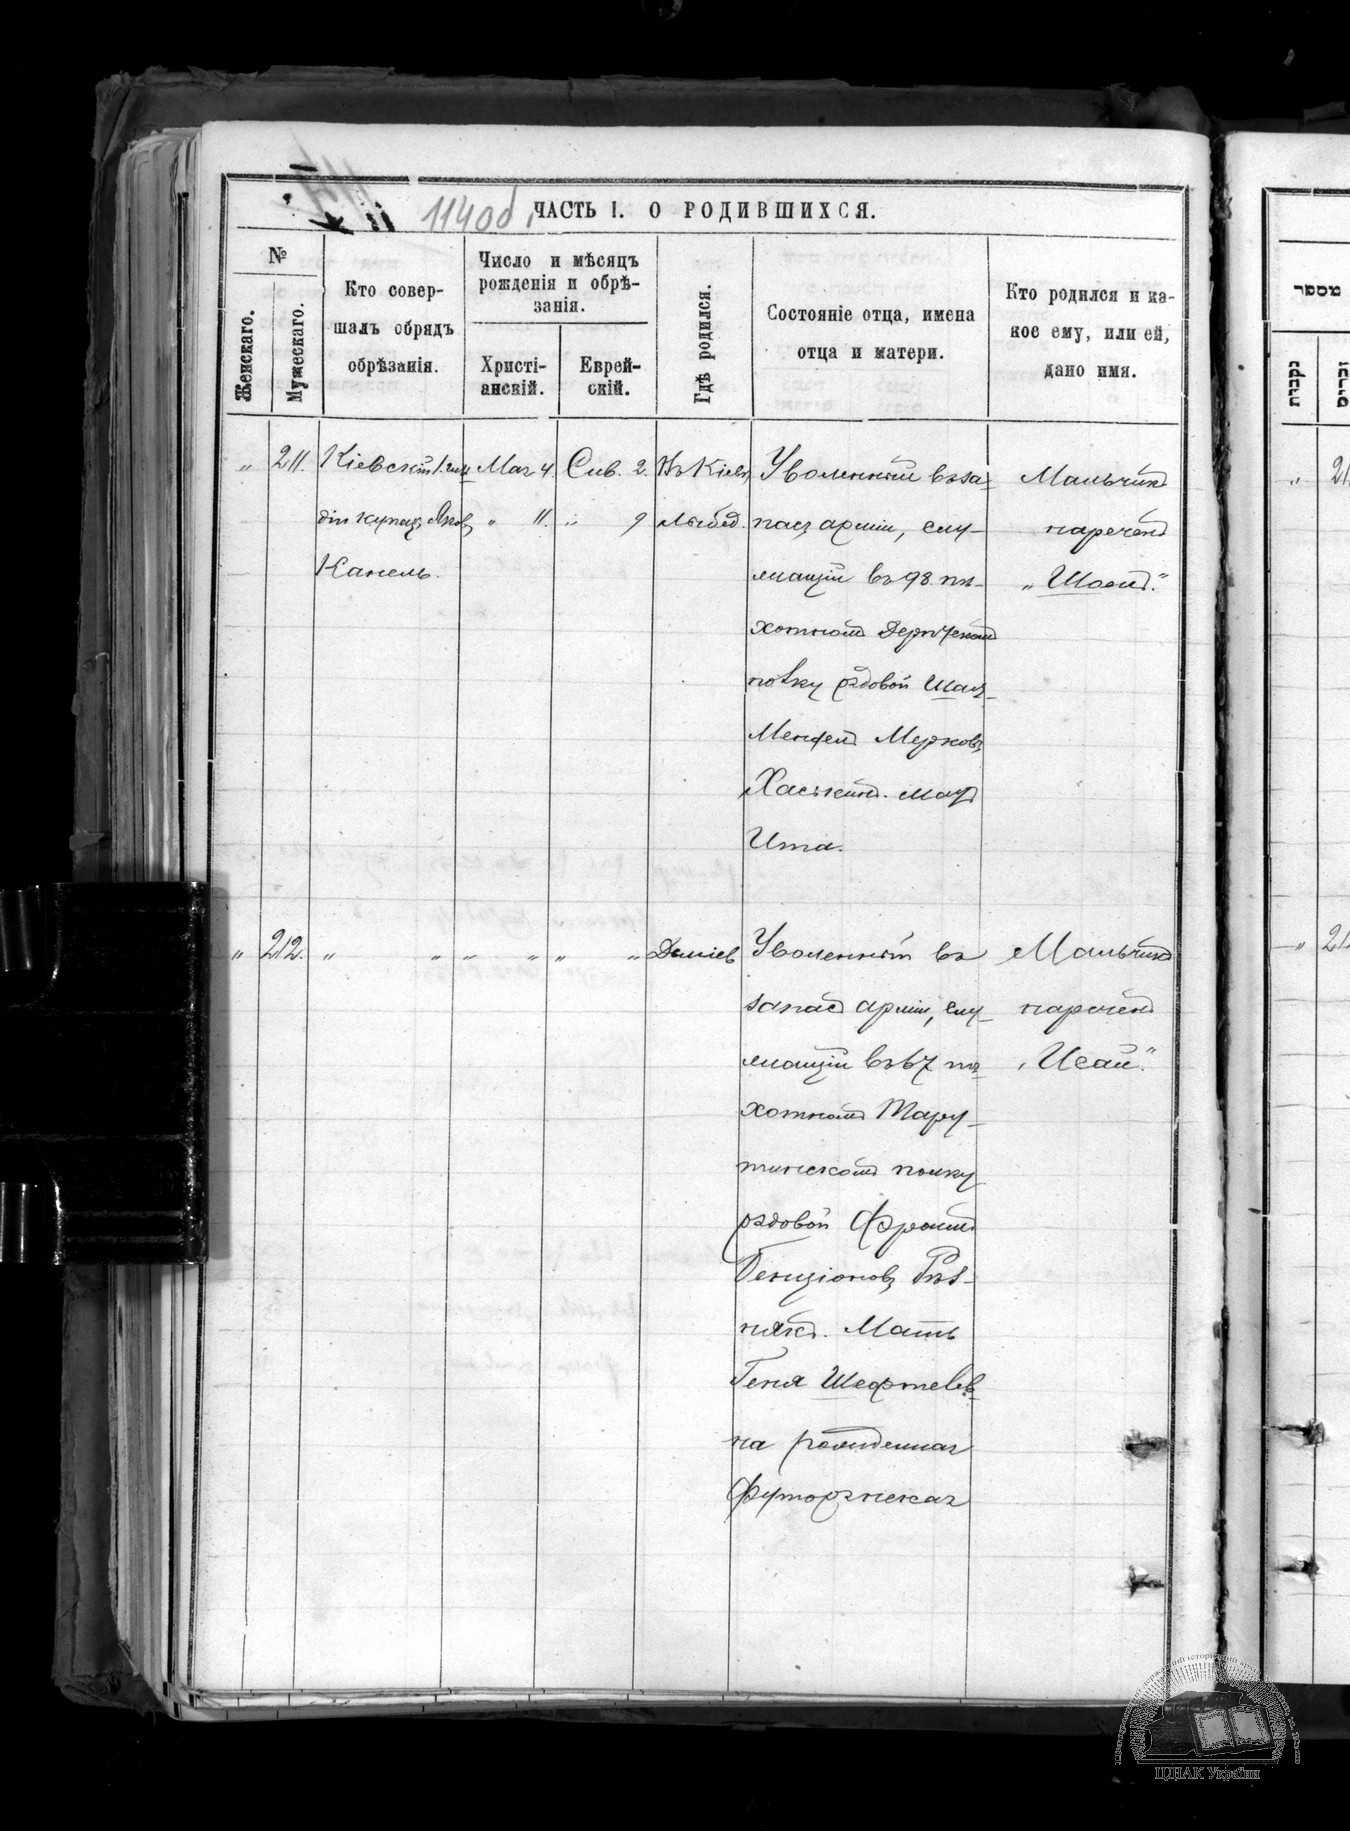 114об.
ЧАСТЬ I. О РОДИВШИХСЯ.
№
Женскаго.
Мужескаго.
Кто совер-
шалъ обрядъ
обрѣзанія.
Число и мѣсяцъ
рожденія и обрѣ-
занія.
Христі-
анскій.
Еврей-
скій.
Гдѣ родился.
Состояніе отца, имена
отца и матери.
Кто родился и ка-
кое ему, или ей,
дано имя.
„ 211.
Кіевскій 1. гиль
діи купецъ Яковъ
Канель.
Мая 4.
„ 11.
Сив. 2.
„ 9
Въ Кіевѣ,
Лыбед.
Уволенный въ за-
пасъ арміи, слу-
жащій въ 98 пѣ-
хотномъ Дерптскомъ
полку рядовой
Мендель
Хаскинъ. Мать
Ита.
Мальчикъ
нареченъ
„ 212.
„ „ „ „ „ „
Деміев
Уволенный въ
запасъ арміи, слу-
жащій въ 67 пѣ-
хотномъ Тару-
тинскомъ полку
рядовой Фроимъ
Бенціоновъ Рѣз-
никъ. Мать
Геня Шефтелев-
на рожденная
Футорянская
Мальчикъ
нареченъ
„Исай."
מספר
נקבות
זכרים
„
21
„
21
ЦДІАК України